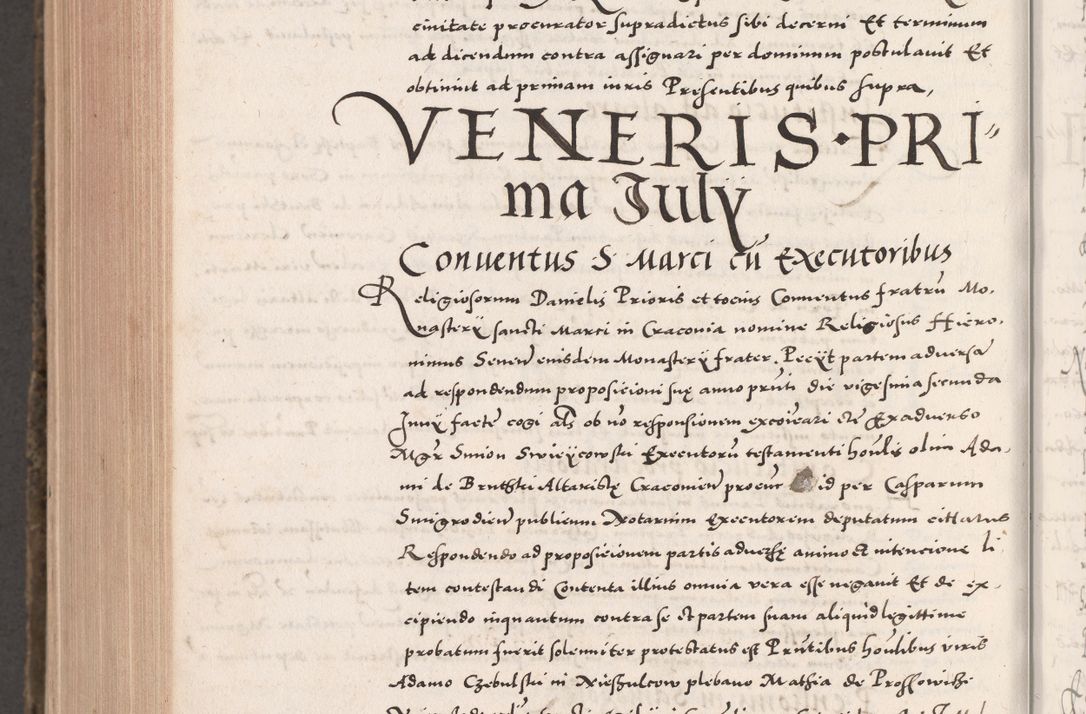 ciuitate procurator supradictus sibi decerni Et terminum
ad dicendum contra assignari per dominum postulauit Et
obtinuit ad primam iuris Presentibus quibus supra,
VENERIS·PRI
ma July
Conuentus S Marci cū Executoribus
Religiosorum Danielis Prioris et tocius Conuentus fratrū Mo-
nastery sancti Marci in Craconia nomine Religiosus Hiero-
nimus eiusdem Monastery frater. Pecyt partem aduersā
ad respondendum proposicioni suę anno prnti die vigesima secunda
Juny factē cogi als ob nō responsionem excoicari etc Ex aduerso
Mgr Simon Swieycowski Executorū testamenti honlis olim Ada-
mi de Altaristę Cracouien procur id per Casparum
Smigrodien publicum Notarium Executorem deputatum citatus
Respondendo ad proposicionem partis aduersę animo et intencione li
tem contestandi Contenta illius omnia vera esse negauit Et de ex-
cipiendo inquantum contra se et partem suam aliquid legittime
probatum fuerit solenniter protestatus est Prntibus honlibus viris
Adamo Czebulski in Nieszulcow plebano Mathia de Prossowicze